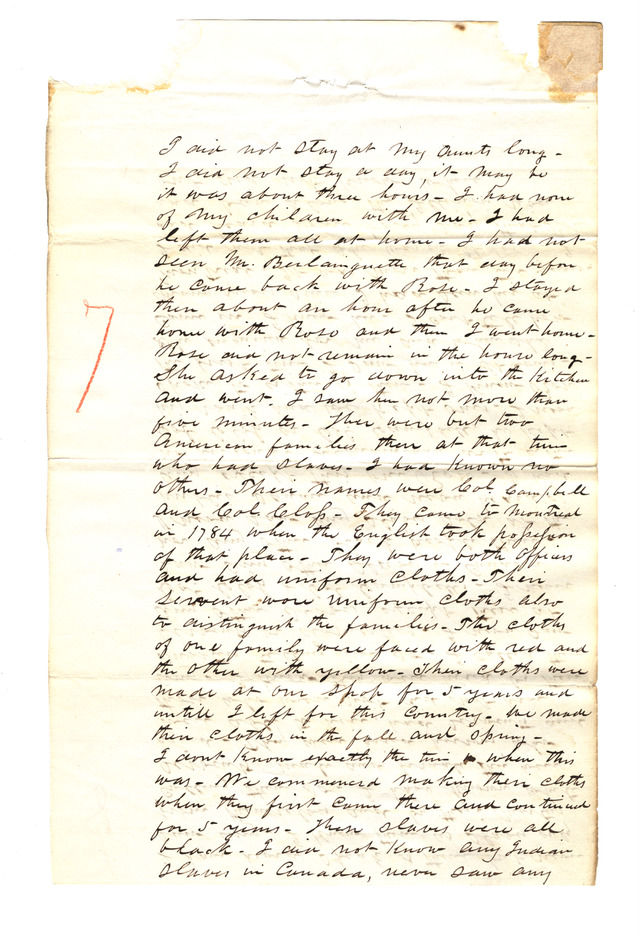 I did not stay at my aunts long -
I did not stay a day, it may be
it was about three hours - I had none
of my children with me - I had
left them all at home - I had not
seen Mr. that day before
he came back with Rose - I stayed
then about an hour after he came
home with Rose and then I went home -
Rose did not remain in the house long -
She asked to go down into the Kitchen
and went. I saw her not more than
five minutes - Ther were but two
American families then at that time
who had slaves - I had known no
others - Their names were Col. Campbell
and Col. Closs - They came to Montreal
in 1784 when the English took possession
of that place - They were both Officers
and had uniform cloths - Their
servent wore uniform cloths also
to distinguish the families - The cloths
of one family were faced with red and
the other with yellow - Their cloths were
made at our shop for 5 years and
untill I left for this Country - We made
their cloths in the fall and spring -
I dont know exactly the time when this
was - We commenced making their cloths
when they first came there and continued
for 5 years - These slaves were all
black - I did not know any Indian
slaves in Canada, never saw any
7